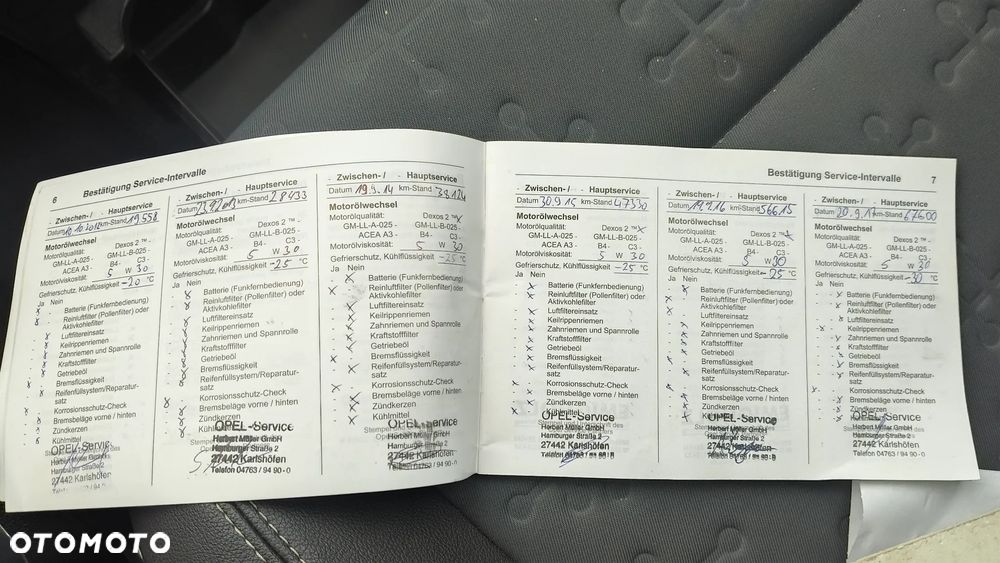 6
Bestätigung Service-Intervalle
Zwischen-/ Hauptservice
Datum 10.10.2012 km-Stand 19558
Motorölwechsel
Motorölqualität: Dexos 2 ™ -
GM-LL-A-025 - GM-LL-B-025 -
ACEA A3 - B4- C3 -
Motorölviskosität: 5 W 30
Gefrierschutz, Kühlflüssigkeit -20 °C
Ja Nein
Batterie (Funkfernbedienung)
Reinluftfilter (Pollenfilter) oder
Aktivkohlefilter
Luftfiltereinsatz
Keilrippenriemen
Zahnriemen und Spannrolle
Kraftstofffilter
Getriebeöl
Bremsflüssigkeit
Reifenfüllsystem/Reparatur-
satz
Korrosionsschutz-Check
Bremsbeläge vorne / hinten
Zündkerzen
Kühlmittel
OPEL-Service
Herbert Müller GmbH
Hamburger Straße 2
27442 Karlshöfen
Zwischen-/ - Hauptservice
Datum 23.9.2013 km-Stand 28433
Motorölwechsel
Motorölqualität: Dexos 2 ™ -
GM-LL-A-025 - GM-LL-B-025 -
ACEA A3 - B4- C3 -
Motorölviskosität: 5 W 30
Gefrierschutz, Kühlflüssigkeit -25 °C
Ja - Nein
Batterie (Funkfernbedienung)
Reinluftfilter (Pollenfilter) oder
Aktivkohlefilter
Luftfiltereinsatz
Keilrippenriemen
Zahnriemen und Spannrolle
Kraftstofffilter
Getriebeöl
Bremsflüssigkeit
Reifenfüllsystem/Reparatur-
satz
Korrosionsschutz-Check
Bremsbeläge vorne / hinten
Zündkerzen
OPEL-Service
Herbert Müller GmbH
Hamburger Straße 2
27442 Karlshöfen
Telefon 04763 / 94 90 - 0
Zwischen-/ - Hauptservice
Datum 19.9.14 km-Stand 38.124
Motorölwechsel
Motorölqualität: Dexos 2 ™ x
GM-LL-A-025 - GM-LL-B-025 -
ACEA A3 - B4- C3 -
Motorölviskosität: 5 W 30
Gefrierschutz, Kühlflüssigkeit -25 °C
Ja - Nein
Batterie (Funkfernbedienung)
Reinluftfilter (Pollenfilter) oder
Aktivkohlefilter
Luftfiltereinsatz
Keilrippenriemen
Zahnriemen und Spannrolle
Kraftstofffilter
Getriebeöl
Bremsflüssigkeit
Reifenfüllsystem/Reparatur-
satz
Korrosionsschutz-Check
Bremsbeläge vorne / hinten
Zündkerzen
Kühlmittel
OPEL-Service
Herbert Müller GmbH
Hamburger Straße 2
27442 Karlshöfen
Telefon 04763 / 94 90 - 0
Bestätigung Service-Intervalle 7
Zwischen-/ - Hauptservice
Datum 30.9.15 km-Stand 47330
Motorölwechsel
Motorölqualität: Dexos 2 ™ x
GM-LL-A-025 - GM-LL-B-025 -
ACEA A3 - B4- C3 -
Motorölviskosität: 5 W 30
Gefrierschutz, Kühlflüssigkeit -25 °C
Ja - Nein
Batterie (Funkfernbedienung)
Reinluftfilter (Pollenfilter) oder
Aktivkohlefilter
Luftfiltereinsatz
Keilrippenriemen
Zahnriemen und Spannrolle
Kraftstofffilter
Getriebeöl
Bremsflüssigkeit
Reifenfüllsystem/Reparatur-
satz
Korrosionsschutz-Check
Bremsbeläge vorne / hinten
Zündkerzen
Kühlmittel
OPEL-Service
Herbert Müller GmbH
Hamburger Straße 2
27442 Karlshöfen
Telefon 04763 / 94 90 - 0
Zwischen-/ - Hauptservice
Datum 19.9.16 km-Stand 56615
Motorölwechsel
Motorölqualität: Dexos 2 ™ x
GM-LL-A-025 - GM-LL-B-025 -
ACEA A3 - B4- C3 -
Motorölviskosität: 5 W 30
Gefrierschutz, Kühlflüssigkeit -25 °C
Ja - Nein
Batterie (Funkfernbedienung)
Reinluftfilter (Pollenfilter) oder
Aktivkohlefilter
Luftfiltereinsatz
Keilrippenriemen
Zahnriemen und Spannrolle
Kraftstofffilter
Getriebeöl
Bremsflüssigkeit
Reifenfüllsystem/Reparatur-
satz
Korrosionsschutz-Check
Bremsbeläge vorne / hinten
Zündkerzen
Kühlmittel
OPEL-Service
Herbert Müller GmbH
Hamburger Straße 2
27442 Karlshöfen
Telefon 04763 / 94 90 - 0
Zwischen-/ - Hauptservice
Datum 20.9.17 km-Stand 67600
Motorölwechsel
Motorölqualität: Dexos 2 ™ -
GM-LL-A-025 - GM-LL-B-025 -
ACEA A3 - B4- C3 -
Motorölviskosität: 5 W 30
Gefrierschutz, Kühlflüssigkeit -30 °C
Ja - Nein
Batterie (Funkfernbedienung)
Reinluftfilter (Pollenfilter) oder
Aktivkohlefilter
Luftfiltereinsatz
Keilrippenriemen
Zahnriemen und Spannrolle
Kraftstofffilter
Getriebeöl
Bremsflüssigkeit
Reifenfüllsystem/Reparatur-
satz
Korrosionsschutz-Check
Bremsbeläge vorne / hinten
Zündkerzen
OPEL-Service
Herbert Müller GmbH
Hamburger Straße 2
27442 Karlshöfen
Telefon 04763 / 94 90 - 0
OTOMOTO